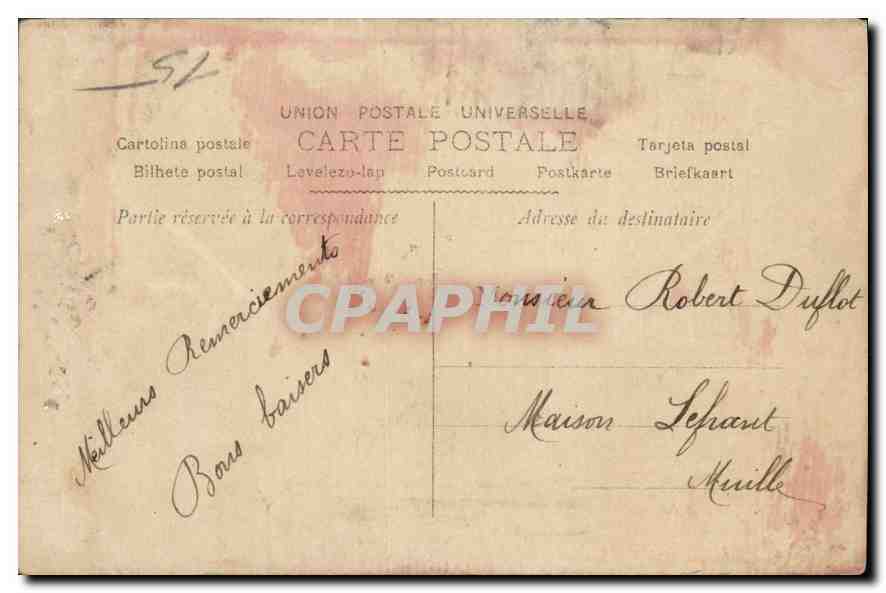 51
UNION POSTALE UNIVERSELLE
CARTE POSTALE
Cartolina postale
Tarjeta postal
Bilhete postal Levelezo-lap Postcard Postkarte Briefkaart
Partie réservée à la correspondance
Adresse du destinataire
Meilleurs Remerciements
Bons baisers
CPAPHIL
Monsieur Robert Duflot
Maison Lefrant
Muille